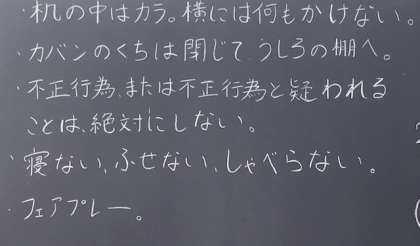 ・机の中はカラ。横には何もかけない。
・カバンのくちは閉じて、うしろの棚へ。
・不正行為、または不正行為と疑われる
ことは、絶対にしない。
・寝ない、ふせない、しゃべらない。
・フェアプレー。